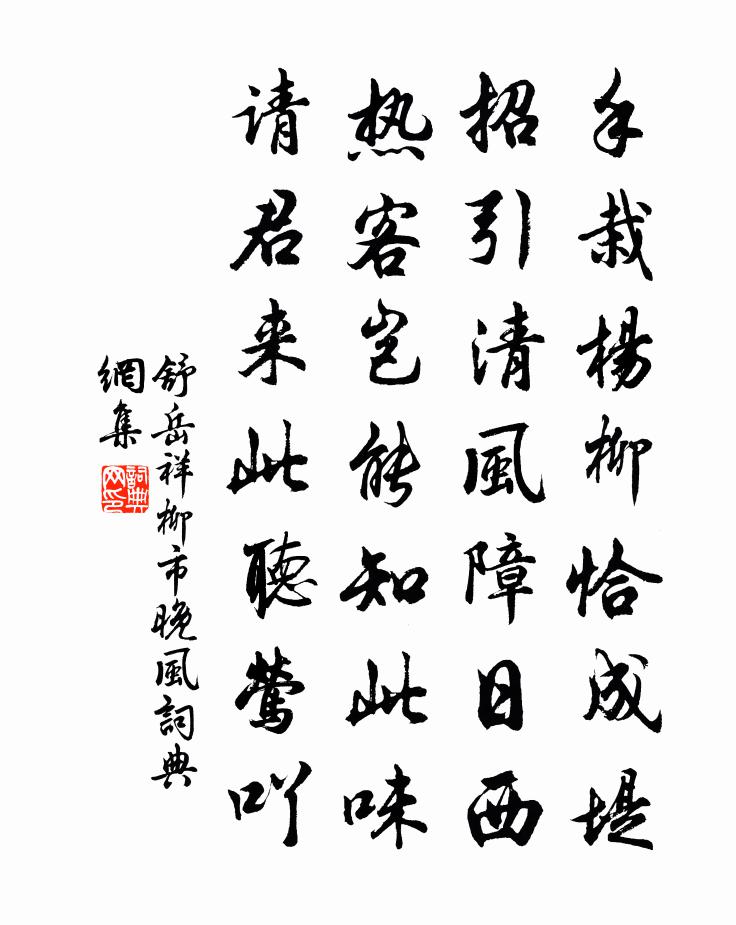 手栽楊柳恰成堤
招引清風障日西
热客岂能知此味
请君来此聽莺吖
舒岳祥柳市晚風詞典
網集
詞典
网印